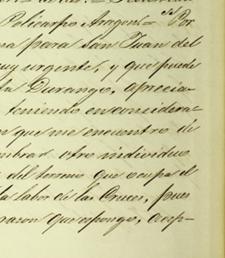 Policarpo Arregui = Por
na para San Juan del
muy urgente, y que puede
ta Durango, aprecia-
teniendo en considera-
n que me encuentro de
mbrad otro individuo
del terreno que ocupa el
la labor de las Cruces, pues
razon que espongo, acep-